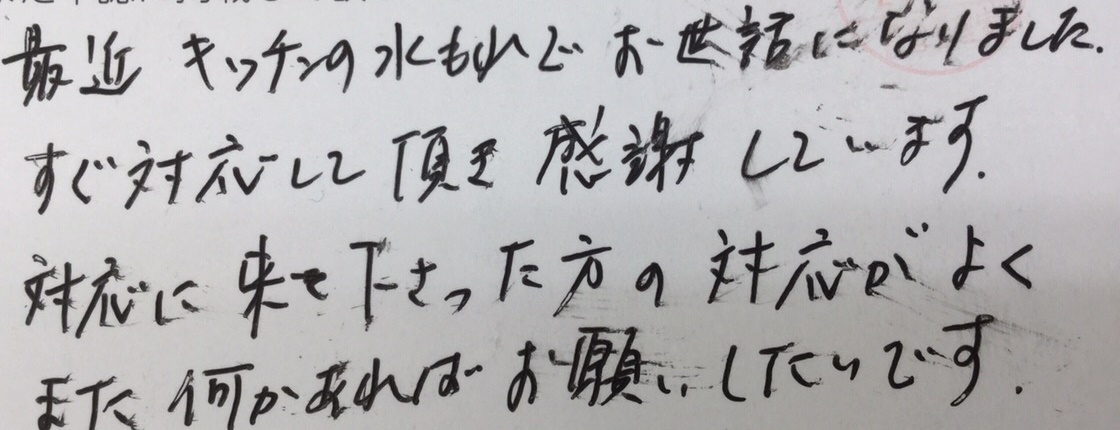 最近 キッチンの水もれで お世話になりました.
すぐ対応して頂き 感謝しています.
対応に来て下さった方の対応がよく
また何かあればお願いしたいです.